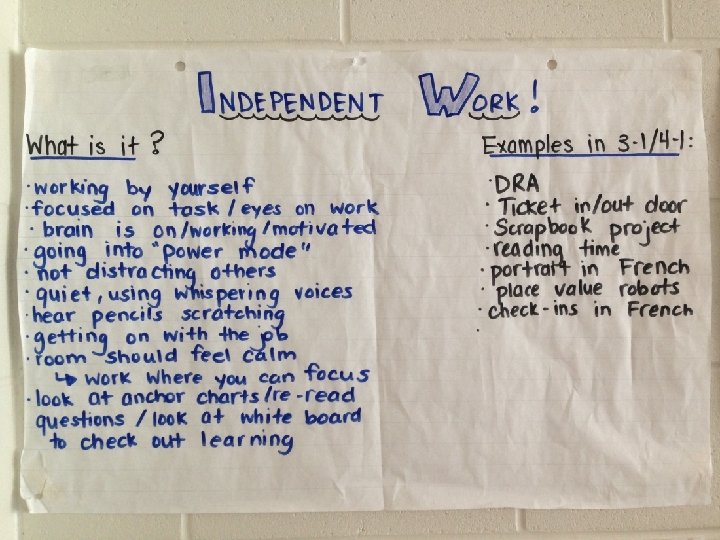 INDEPENDENT WORK!
What is it?
· working by yourself
· focused on task / eyes on work
· brain is on/working/motivated
· going into "power mode"
· not distracting others
· quiet, using whispering voices
· hear pencils scratching
· getting on with the job
· room should feel calm
↳ work where you can focus
· look at anchor charts/re-read
questions / look at white board
to check out learning
Examples in 3-1/4-1:
· DRA
· Ticket in/out door
· Scrapbook project
· reading time
· portrait in French
· place value robots
· check-ins in French
·